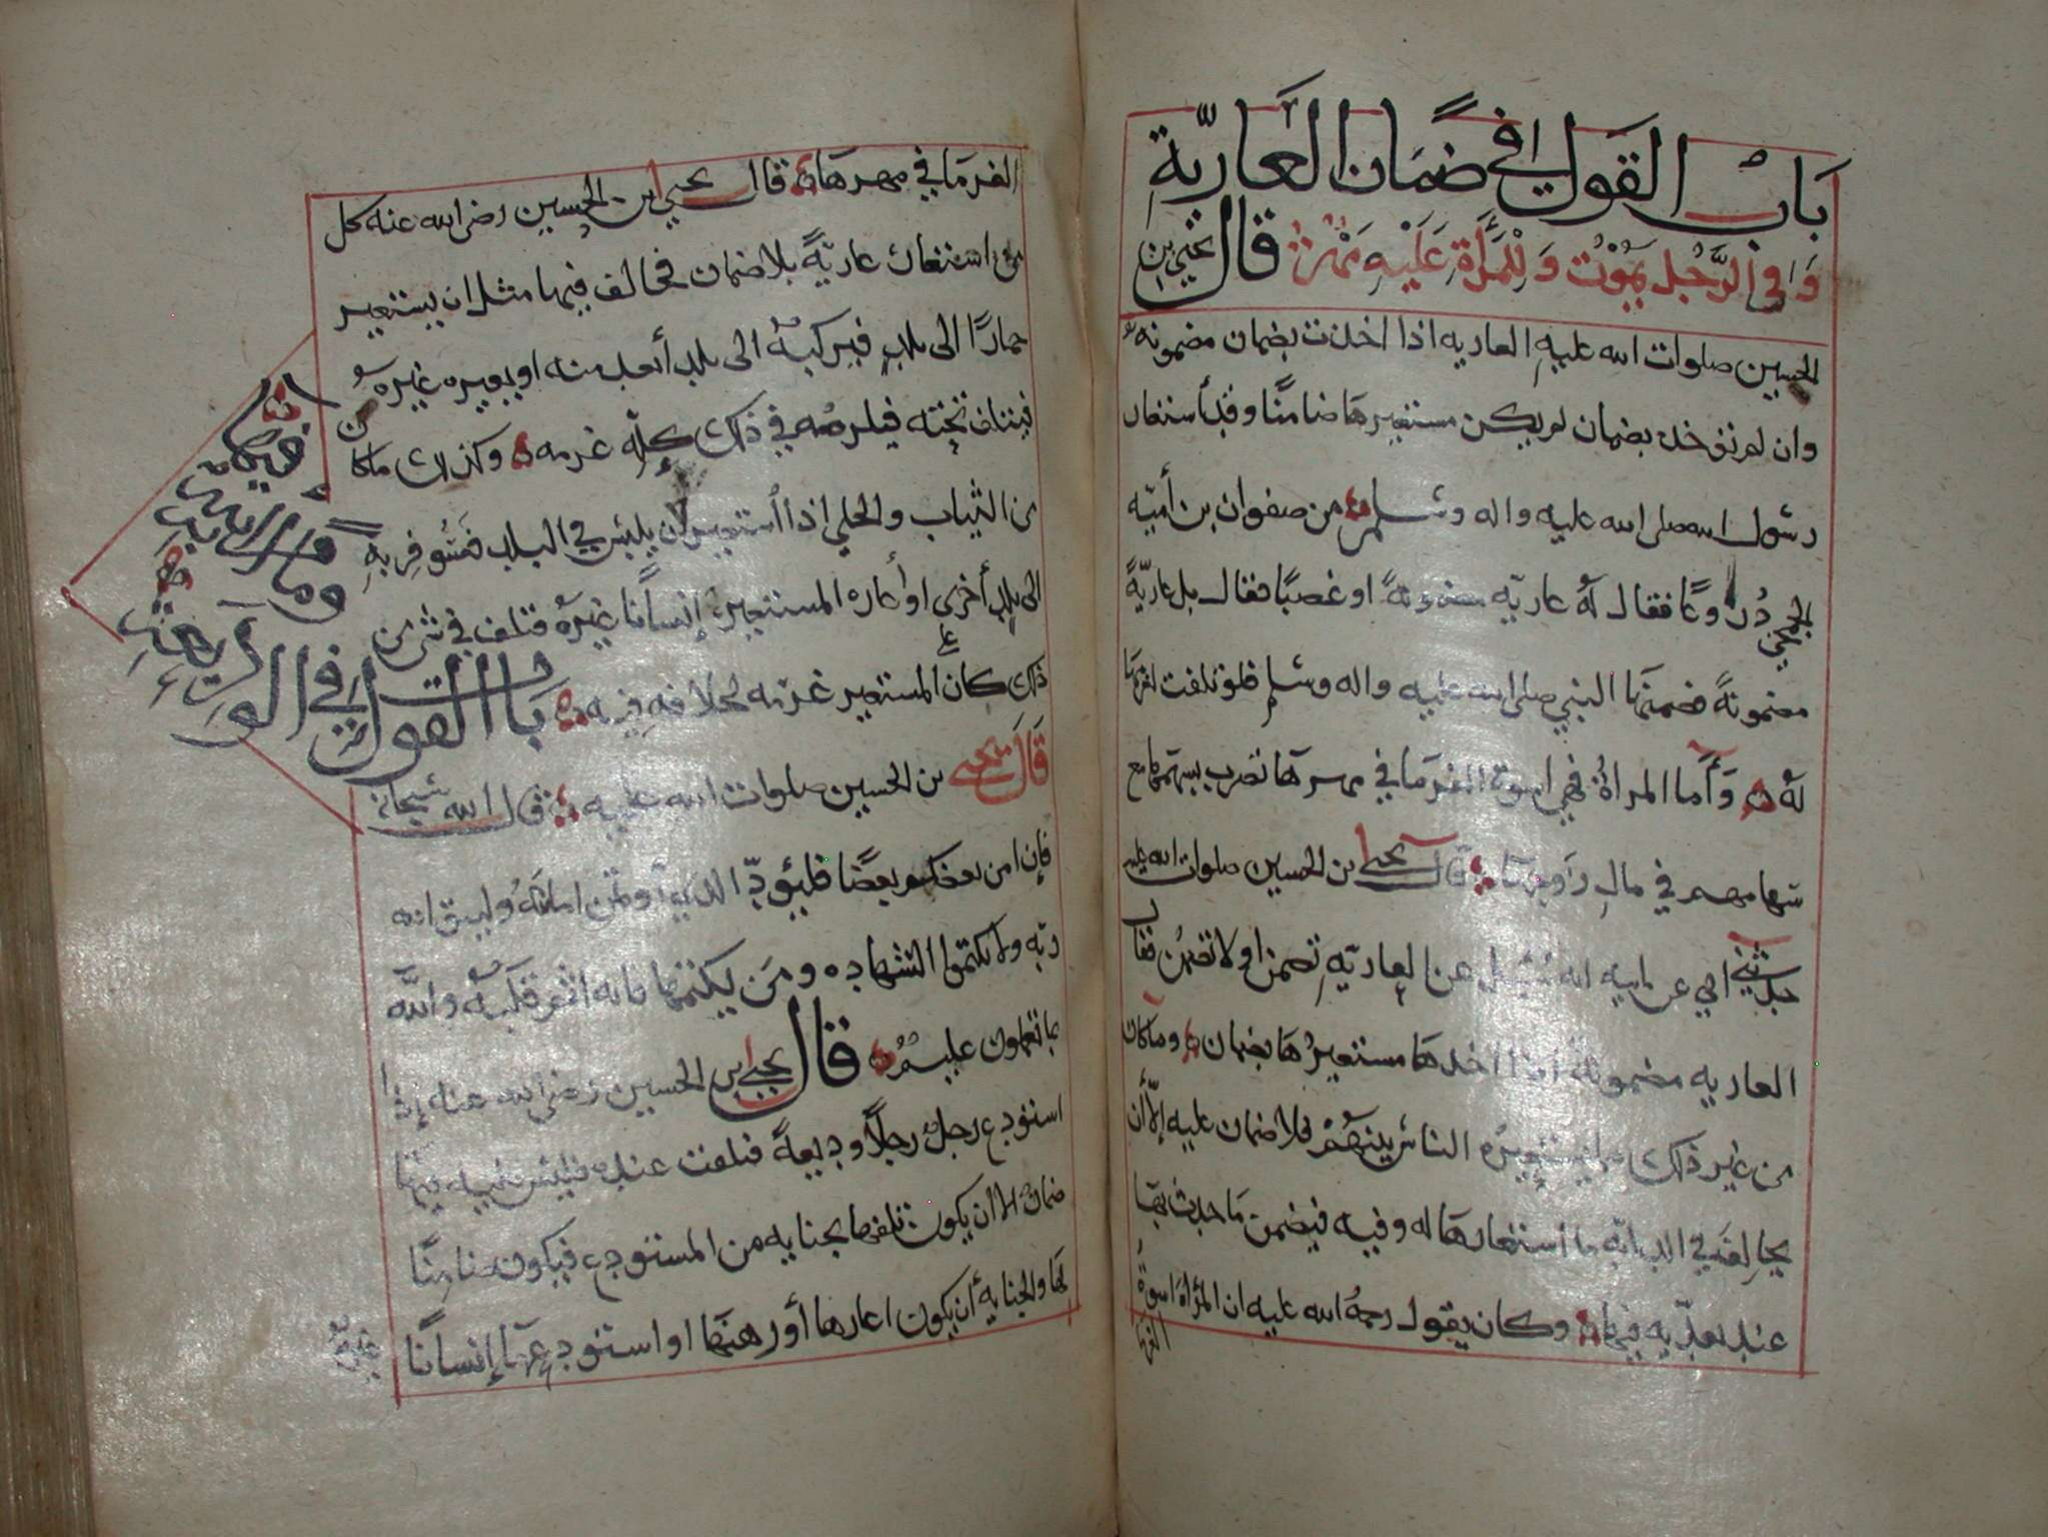 باب القول في ضمان العارية
وفي الرجل يموت وللمرأة عليه مهر قال يحيى بن
الحسين صلوات الله عليه العاريه اذا اخذت بضمان مضمونه
وان لم تؤخذ بضمان لم يكن مستعيرها ضامنًا وقد أستعار
رسول الله صلى الله عليه واله وسلم من صفوان بن أميّه
الجمحي دروعًا فقال له عاريّه مضمونةً او غصبًا فقال بل عاريّةً
مضمونةً فضمنها النبي صلى الله عليه واله وسلم فلو تلفت لغرمها
له وأما المرأة فهي اسوة الغرما في مهرها تضرب بسهمها مع
سهامهم في مال زوجها قال يحيى بن الحسين صلوات الله عليه
حدثني ابي عن ابيه انه سُئل عن العاريّه تضمن او لا تضمن فقال
العاريه مضمونة اذا اخذها مستعيرها بضمان وما كان
من غير ذلك مما يستعيره الناس بينهم فلا ضمان عليه إلّا أن
يخالف في الدابّه ما أستعارها له وفيه فيضمن ما حدث بها
عند تعدّيه فيها وكان يقول رحمة الله عليه ان المرأة اسوة
الغرما
الغرما في مهرها قال يحيى ابن الحسين رضي الله عنه كل
من استعار عاريّةً بلا ضمان فخالف فيها مثل ان يستعير
حمارًا الى بلدٍ فيركبه الى بلد أبعد منه او يعيره غيره
فيتلف تحته فيلزمه في ذلك كلّه غرمه وكذلك ما كان
من الثياب والحلي اذا أستعير لان يلبس في البلد فسُوفِر به
الى بلد أخرى او أعاره المستعير إنسانًا غيره فتلف في شي من
ذلك كان على المستعير غرمه لخلافه فيه باب القول في الوديعة وما يجب فيها
قال يحيى بن الحسين صلوات الله عليه قال الله سبحانه
فإن امن بعضكم بعضًا فليؤدّ الذي أوتمن امانته وليتق الله
ربّه ولا تكتموا الشهاده ومَن يكتمها فانه اثم قلبه والله
بما تعملون عليمٌ قال يحيى بن الحسين رضي الله عنه إذا
استودع رجلٌ رجلًا وديعةً فتلفت عنده فليس عليه فيها
ضمان الا ان يكون تلفها بجنايه من المستودع فيكون ضامنًا
لها والجنايه أن يكون اعارها أو رهنها او استودع عنها إنسانًا
غيره